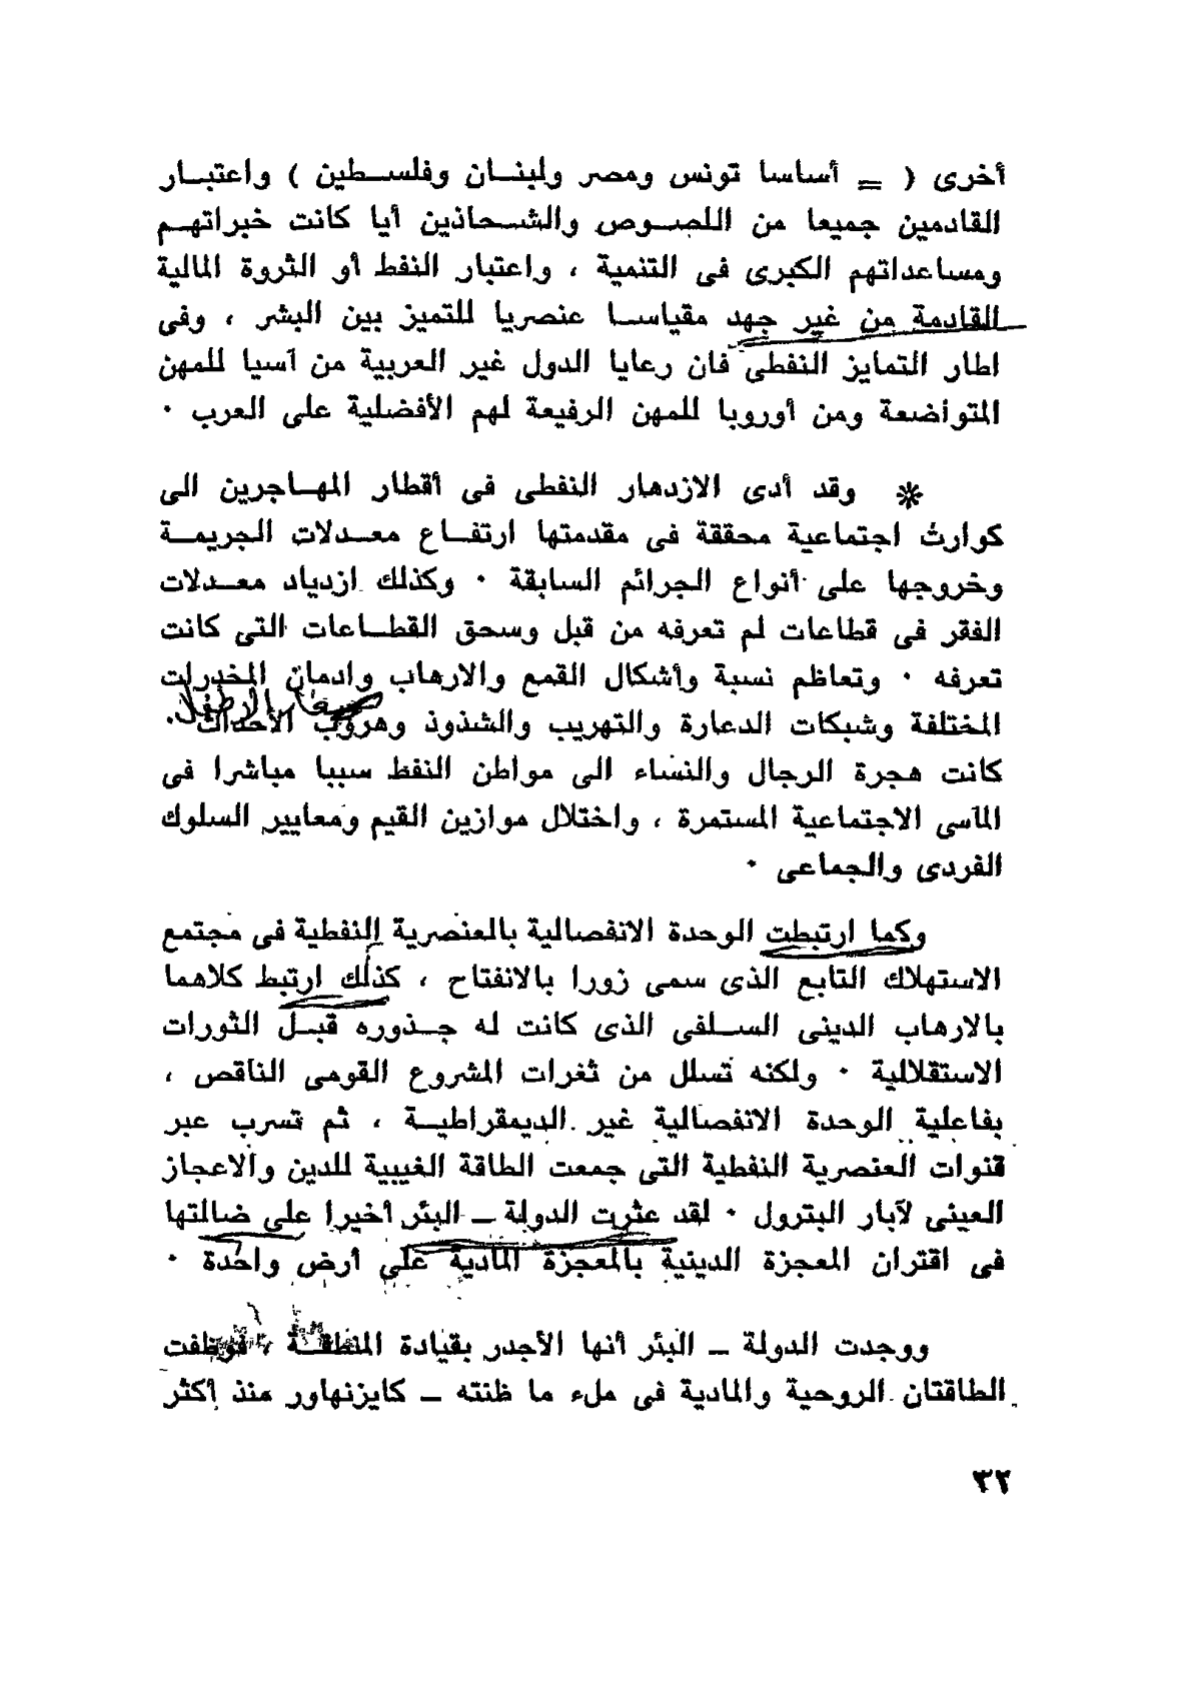 أخرى ( = أساسا تونس ومصر ولبنــان وفلســطين ) واعتبــار
القادمين جميعا من اللصــوص والشــحاذين أيا كانت خبراتهــم
ومساعداتهم الكبرى فى التنمية ، واعتبار النفط أو الثروة المالية
القادمة من غير جهد مقياســا عنصريا للتميز بين البشر ، وفى
اطار التمايز النفطى فان رعايا الدول غير العربية من آسيا للمهن
المتواضعة ومن أوروبا للمهن الرفيعة لهم الأفضلية على العرب ٠
※ وقد أدى الازدهار النفطى فى أقطار المهــاجرين الى
كوارث اجتماعية محققة فى مقدمتها ارتفــاع معــدلات الجريمــة
وخروجها على أنواع الجرائم السابقة ٠ وكذلك ازدياد معــدلات
الفقر فى قطاعات لم تعرفه من قبل وسحق القطــاعات التى كانت
تعرفه ٠ وتعاظم نسبة وأشكال القمع والارهاب وادمان المخدرات
المختلفة وشبكات الدعارة والتهريب والشذوذ وهروب الأحداث ٠
كانت هجرة الرجال والنساء الى مواطن النفط سببا مباشرا فى
المآسى الاجتماعية المستمرة ، واختلال موازين القيم ومعايير السلوك
الفردى والجماعى ٠
وكما ارتبطت الوحدة الانفصالية بالعنصرية النفطية فى مجتمع
الاستهلاك التابع الذى سمى زورا بالانفتاح ، كذلك ارتبط كلاهما
بالارهاب الدينى الســلفى الذى كانت له جــذوره قبــل الثورات
الاستقلالية ٠ ولكنه تسلل من ثغرات المشروع القومى الناقص ،
بفاعلية الوحدة الانفصالية غير الديمقراطيــة ، ثم تسرب عبر
قنوات العنصرية النفطية التى جمعت الطاقة الغيبية للدين والاعجاز
العينى لآبار البترول ٠ لقد عثرت الدولة ــ البئر أخيرا على ضالتها
فى اقتران المعجزة الدينية بالمعجزة المادية على أرض واحدة ٠
ووجدت الدولة ــ البئر أنها الأجدر بقيادة المنطقــة ، فوظفت
الطاقتان الروحية والمادية فى ملء ما ظنته ــ كايزنهاور منذ أكثر
٣٢